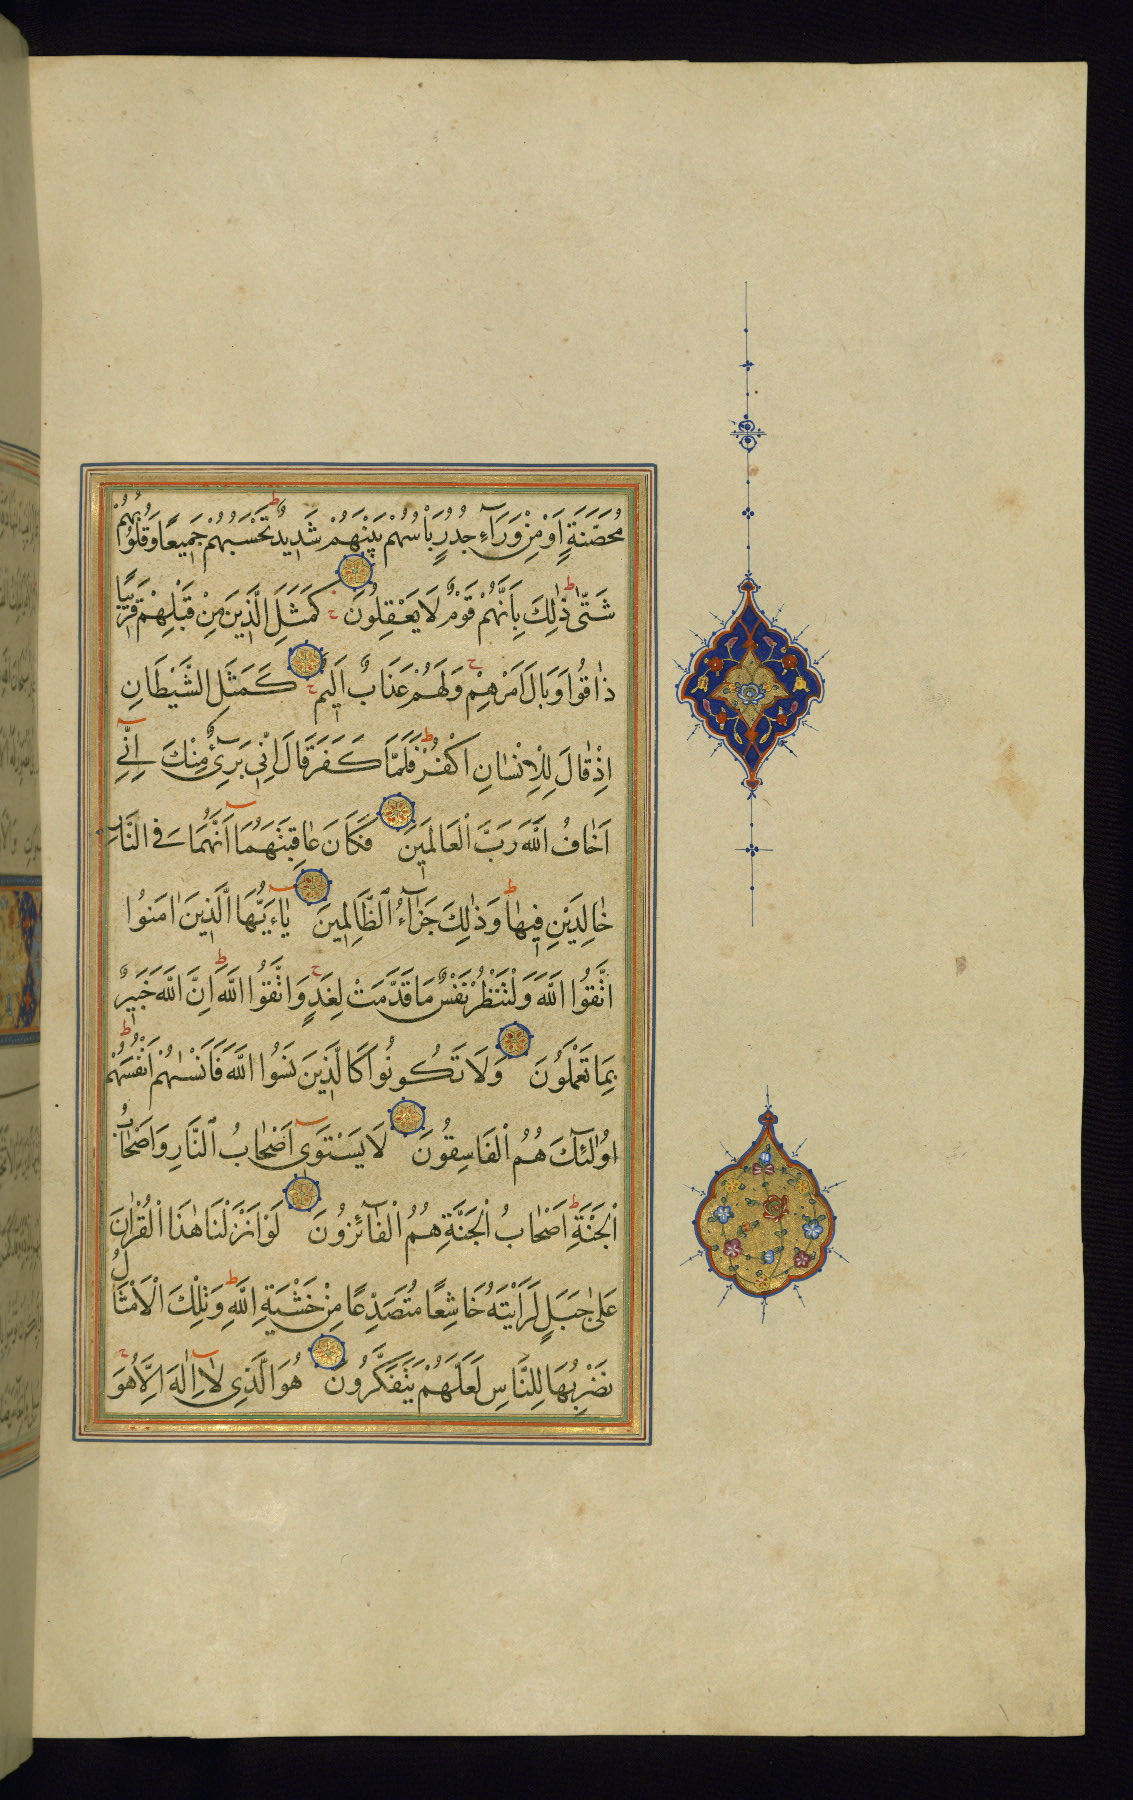 مُحَصَّنَةٍ اَوْ مِنْ وَرَآءِ جُدُرٍ بَاْسُهُمْ بَيْنَهُمْ شَدِيدٌ تَحْسَبُهُمْ جَمِيعًا وَقُلُوبُهُمْ
شَتّٰى ذٰلِكَ بِاَنَّهُمْ قَوْمٌ لَا يَعْقِلُونَ كَمَثَلِ الَّذِينَ مِنْ قَبْلِهِمْ قَرِيبًا
ذٰاقُوا وَبَالَ اَمْرِهِمْ وَلَهُمْ عَذَابٌ اَلِيمٌ كَمَثَلِ الشَّيْطَانِ
اِذْ قٰالَ لِلْاِنْسٰانِ اكْفُرْ فَلَمَّا كَفَرَ قَالَ اِنِّى بَرِىٓءٌ مِنْكَ اِنِّى
اَخٰافُ اللّٰهَ رَبَّ الْعَالَمِينَ فَكَانَ عٰاقِبَتَهُمَا اَنَّهُمَا فِى النَّارِ
خٰالِدَيْنِ فِيهٰا وَذٰلِكَ جَزٰٓاءُ الظَّالِمِينَ يٰاءَيُّهَا الَّذِينَ اٰمَنُوا
اتَّقُوا اللّٰهَ وَلْتَنْظُرْ نَفْسٌ مَا قَدَّمَتْ لِغَدٍ وَاتَّقُوا اللّٰهَ اِنَّ اللّٰهَ خَبِيرٌ
بِمَا تَعْمَلُونَ وَلَا تَكُونُوا كَالَّذِينَ نَسُوا اللّٰهَ فَاَنْسٰيهُمْ اَنْفُسَهُمْ
اُولٰٓئِكَ هُمُ الْفَاسِقُونَ لَا يَسْتَوِى اَصْحٰابُ النَّارِ وَاَصْحٰابُ
الْجَنَّةِ اَصْحٰابُ الْجَنَّةِ هُمُ الْفَآئِزُونَ لَوْ اَنْزَلْنَا هٰذَا الْقُرْاٰنَ
عَلٰى جَبَلٍ لَرَاَيْتَهُ خَاشِعًا مُتَصَدِّعًا مِنْ خَشْيَةِ اللّٰهِ وَتِلْكَ الْاَمْثَالُ
نَضْرِبُهَا لِلنَّاسِ لَعَلَّهُمْ يَتَفَكَّرُونَ هُوَ الَّذِى لٰٓا اِلٰهَ اِلَّا هُوَ